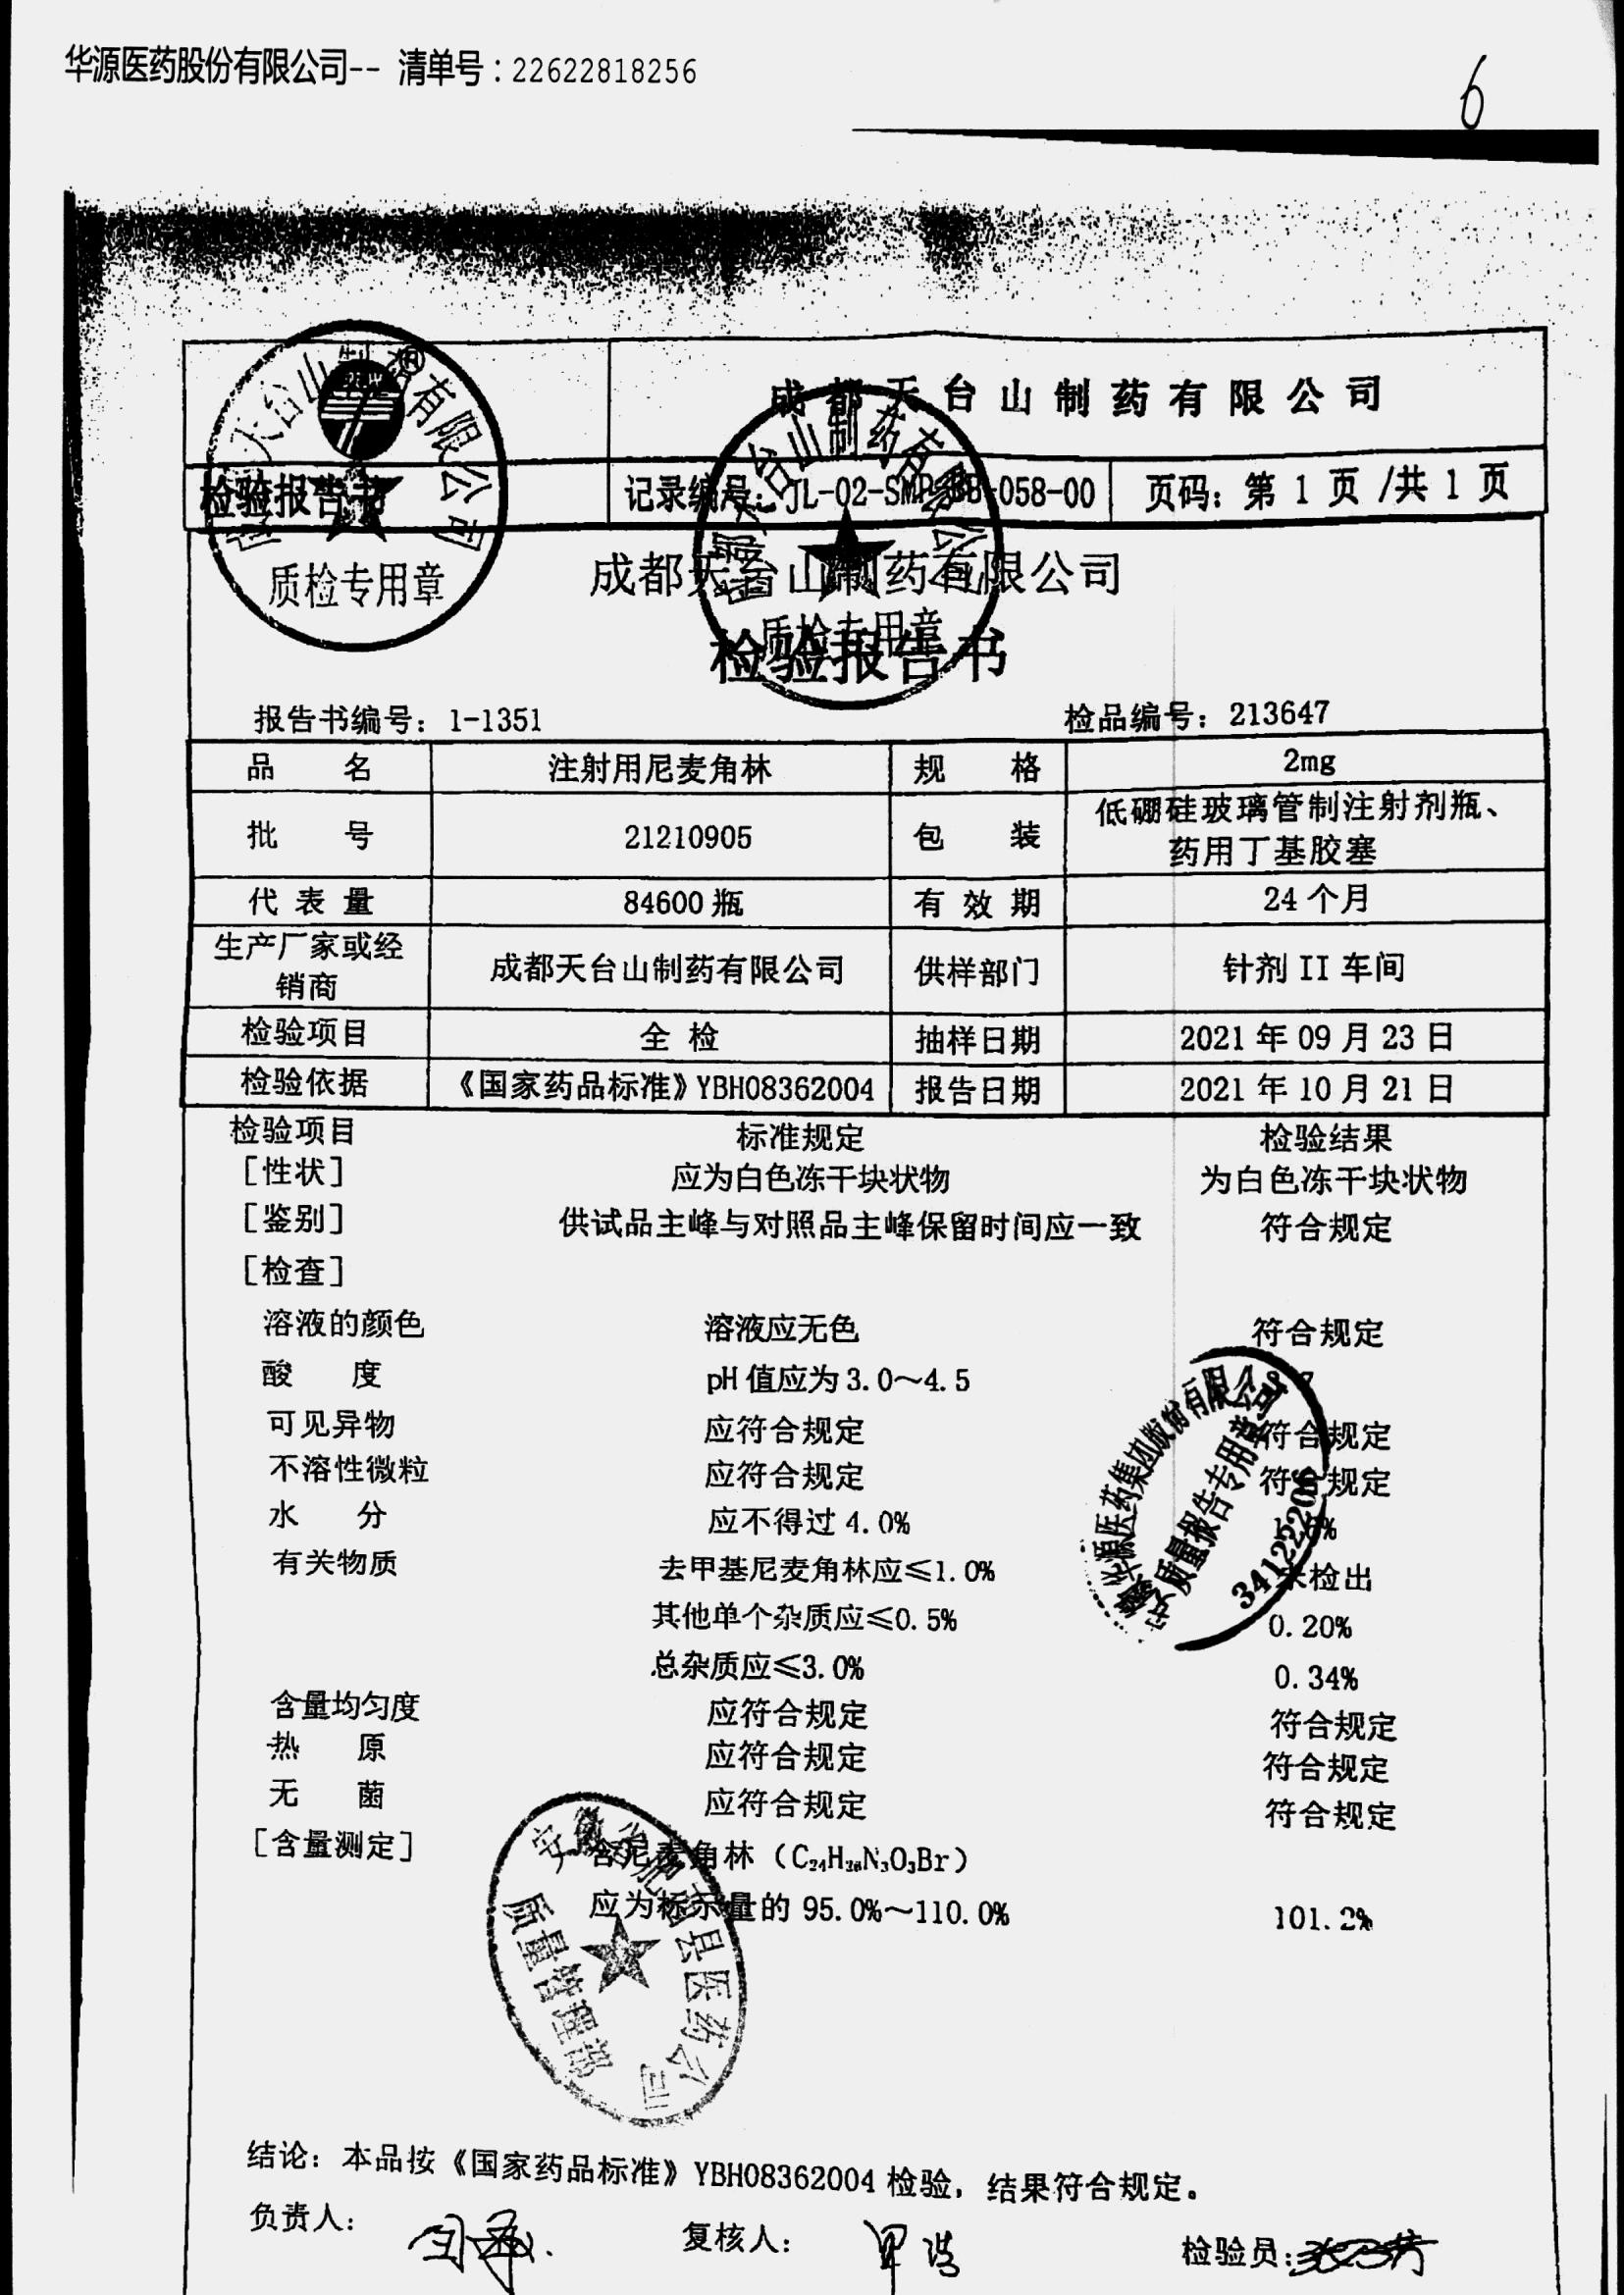 华源医药股份有限公司-- 清单号:22622818256
6
成都天台山制药有限公司
检验报告书 记录编号: JL-02-SMP 058-00 页码: 第 1 页 /共 1 页
成都天台山制药有限公司
检验报告书
质检专用章
质检专用章
报告书编号: 1-1351 检品编号: 213647
品名 注射用尼麦角林 规格 2mg
批号 21210905 包装 低硼硅玻璃管制注射剂瓶、
药用丁基胶塞
代表量 84600 瓶 有效期 24 个月
生产厂家或经
销商 成都天台山制药有限公司 供样部门 针剂 II 车间
检验项目 全检 抽样日期 2021 年 09 月 23 日
检验依据 《国家药品标准》YBH08362004 报告日期 2021 年 10 月 21 日
检验项目 标准规定 检验结果
[性状] 应为白色冻干块状物 为白色冻干块状物
[鉴别] 供试品主峰与对照品主峰保留时间应一致 符合规定
[检查]
溶液的颜色 溶液应无色 符合规定
酸度 pH 值应为 3.0～4.5
可见异物 应符合规定 符合规定
不溶性微粒 应符合规定 符合规定
水分 应不得过 4.0%
有关物质 去甲基尼麦角林应≤1.0% 未检出
其他单个杂质应≤0.5% 0.20%
总杂质应≤3.0% 0.34%
质量报告专用章
34122206
含量均匀度 应符合规定 符合规定
热原 应符合规定 符合规定
无菌 应符合规定 符合规定
[含量测定] 含尼麦角林（C₂₄H₂₆N₃O₃Br）
应为标示量的 95.0%～110.0% 101.2%
质量管理部
结论: 本品按《国家药品标准》YBH08362004 检验, 结果符合规定。
负责人: 复核人: 检验员: